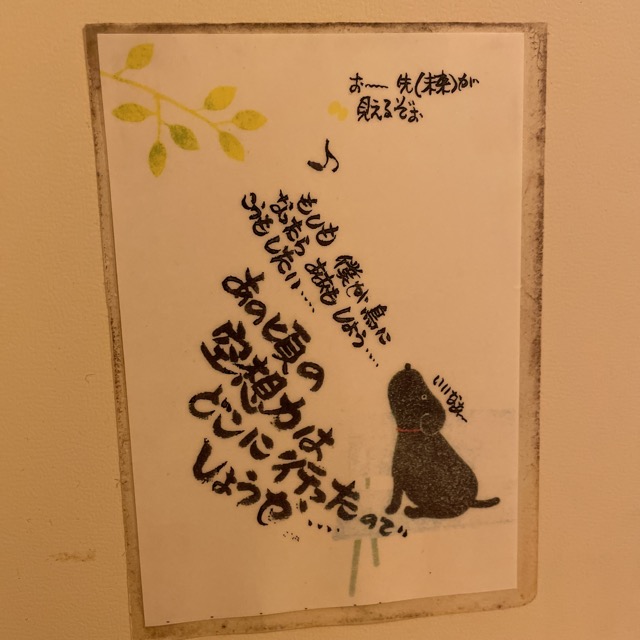 お〜 先(未来)が
見えるぞぉ
もしも 僕が 鳥に
なったら ああも しよう・・・・
こうも したい・・・・
あの頃の
空想力は
どこに行ったので
しょうや・・・・
いいなあ〜